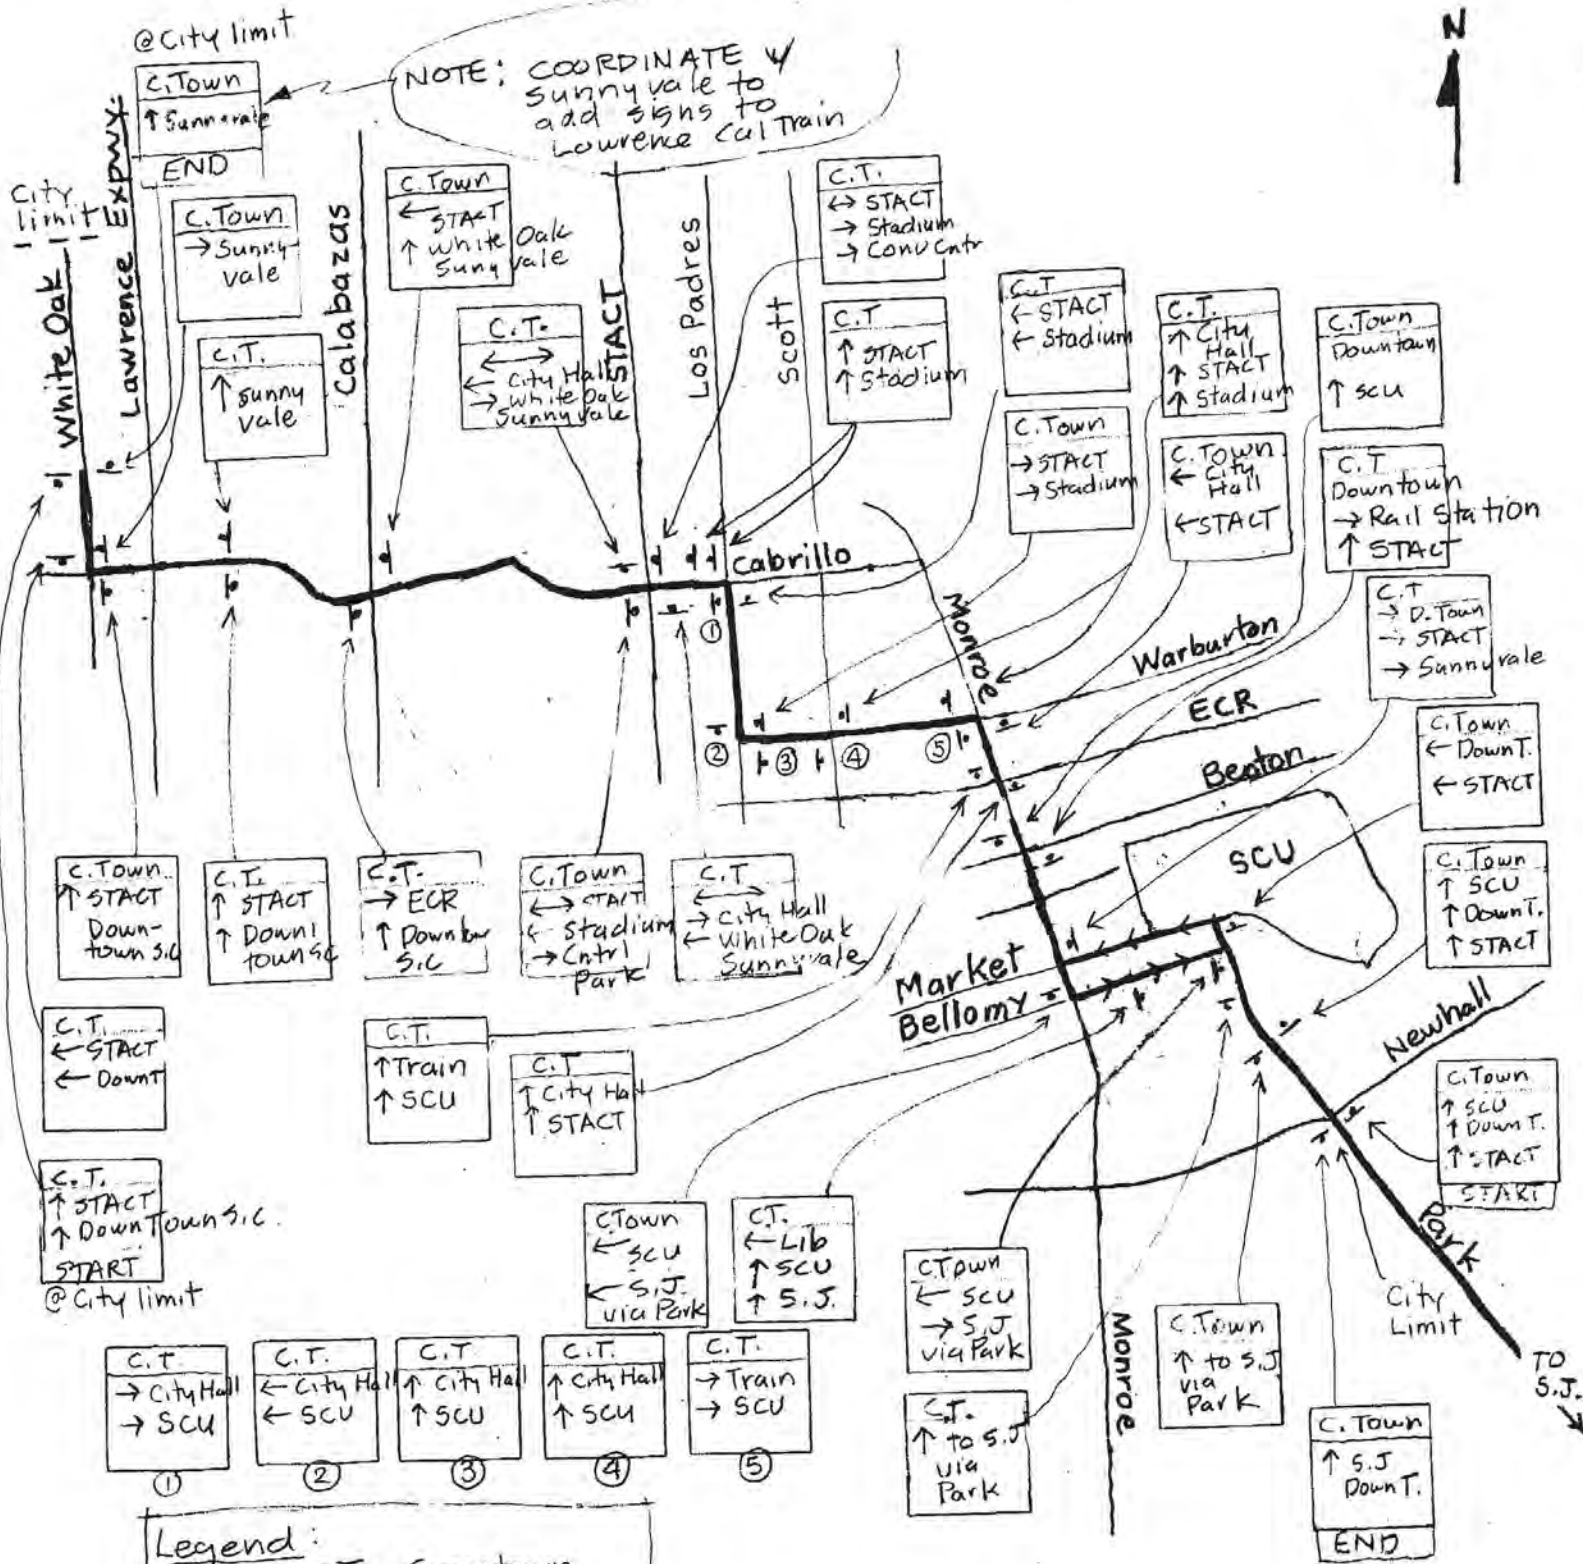 @City limit
C.Town
↑ Sunnyvale
END
NOTE: COORDINATE W/
Sunnyvale to
add signs to
Lawrence CalTrain
N
City
limit
White Oak
Lawrence Expwy.
C.Town
→ Sunny
vale
C.T.
↑ Sunny
vale
Calabazas
C.Town
← STACT
↑ White Oak
Sunnyvale
C.T.
↔
← City Hall
→ White Oak
Sunnyvale
STACT
Los Padres
Scott
C.T.
↔ STACT
→ Stadium
→ Conv Cntr
C.T
↑ STACT
↑ Stadium
C.T
← STACT
← Stadium
C.Town
→ STACT
→ Stadium
C.T.
↑ City
Hall
↑ STACT
↑ Stadium
C.Town
← City
Hall
← STACT
C.Town
Downtown
↑ SCU
C.T
Downtown
→ Rail Station
↑ STACT
C.T
→ D.Town
→ STACT
→ Sunnyvale
C.Town
← DownT.
← STACT
C.Town
↑ SCU
↑ DownT.
↑ STACT
C.Town
↑ SCU
↑ DownT.
↑ STACT
START
Cabrillo
Monroe
Warburton
ECR
Benton
SCU
Market
Bellomy
Newhall
Park
City
Limit
TO
S.J.
Monroe
①
②
③
④
⑤
C.Town
↑ STACT
Down-
town S.C
C.T.
↑ STACT
↑ Down
town SC
C.T.
→ ECR
↑ Downtow
S.C
C.Town
↔ STACT
← Stadium
→ Cntrl
Park
C.T
↔
→ City Hall
← White Oak
Sunnyvale
C.T.
← STACT
← DownT
C.T.
↑ Train
↑ SCU
C.T
↑ City Hall
↑ STACT
C.T.
↑ STACT
↑ DownTown S.C.
START
@ City limit
C.Town
← SCU
← S.J.
via Park
C.T.
← Lib
↑ SCU
↑ S.J.
C.Town
← SCU
→ S.J
via Park
C.T.
↑ to S.J
via
Park
C.Town
↑ to S.J
via
Park
C.Town
↑ S.J
DownT.
END
C.T.
→ City Hall
→ SCU
①
C.T.
← City Hall
← SCU
②
C.T
↑ City Hall
↑ SCU
③
C.T.
↑ City Hall
↑ SCU
④
C.T.
→ Train
→ SCU
⑤
Legend: